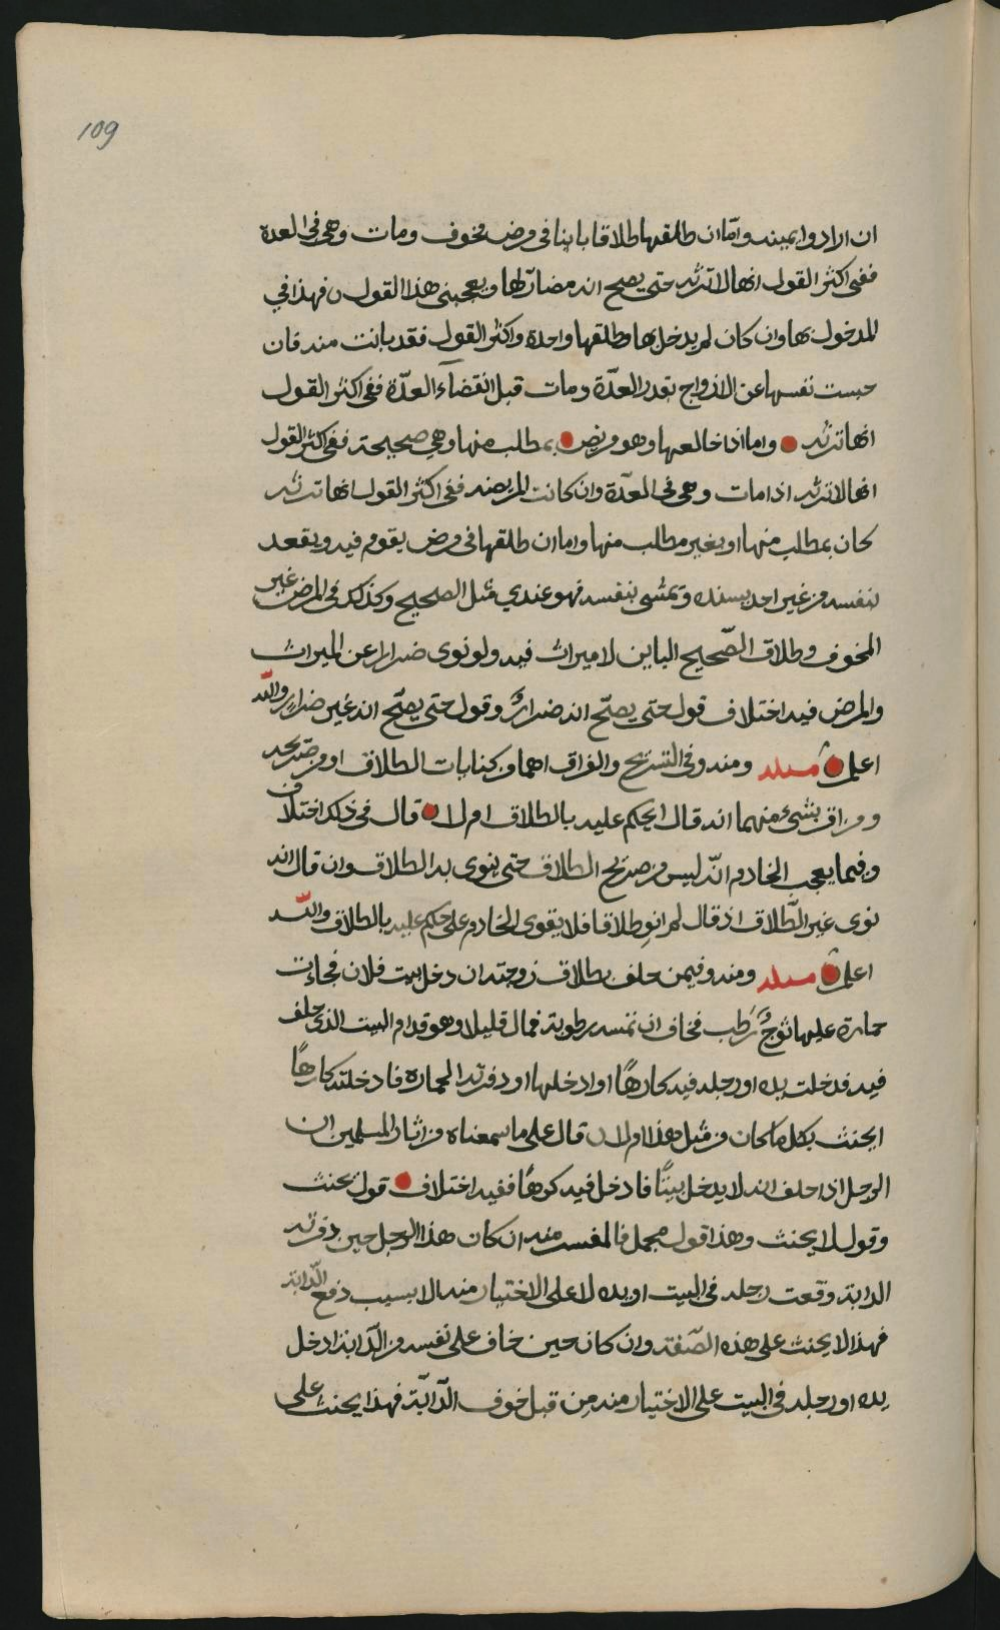 109
ان ارادوا يمينه واما ان طلقها طلاقا باينا في مرض مخوف ومات وهي في العدة
ففي اكثر القول انها لا ترثه حتى يصح انه مضار لها ويعجبني هذا القول فهذا في
المدخول بها وان كان لم يدخل بها وطلقها واحدة واكثر القول فقد بانت منه فان
حبست نفسها عن الازواج بقدر العدّة ومات قبل انقضآء العدّة ففي اكثر القول
انها ترثه واما اذا خالعها وهو مريض بمطلب منها وهي صحيحة ففي اكثر القول
انها لا ترثه اذا مات وهي في العدّة وان كانت المريضه ففي اكثر القول انها ترثه
كان بمطلب منها او بغير مطلب منها واما ان طلقها في مرض يقوم فيه ويقعد
بنفسه من غير احد يسنده ويمشي بنفسه فهو عندي مثل الصحيح وكذلك في المرض غير
المخوف وطلاق الصّحيح الباين لا ميراث فيه ولو نوى ضرارا عن الميراث
والمرض فيه اختلاف قول حتى يصحّ انه ضرارٌ وقول حتى يصحّ انه غير ضرارٍ والله
اعلم مسئلة ومنه وفي التسريح والفراق اهما من كنايات الطلاق او من صريحه
ومن اقر بشيء منهما انه قال ايحكم عليه بالطلاق ام لا قال في ذلك اختلاف
وفيما يعجب الخادم انّه ليس من صريح الطلاق حتى ينوي به الطلاق وان قال انه
نوى غير الطّلاق اذ قال لم انوِ طلاقا فلا يقوى الخادم على حكم عليه بالطلاق والله
اعلم مسئلة ومنه وفيمن حلف بطلاق زوجته ان دخل بيت فلان فجاءت
حمارة عليها ثوجٌ رَطب فخاف ان تمسه رطوبة فمال قليلا وهو قدام البيت الذي حلف
فيه فدخلت يده او رجله فيه كارهًا او ادخلها او دفرته الحمارة فادخلته كارهًا
ايحنث بكل ما كان من مثل هذا ام لا قال على ما سمعناه من اثار المسلمين ان
الرجل اذا حلف انه لا يدخل بيتًا فادخل فيه كرهًا ففيه اختلاف قول يحنث
وقول لا يحنث وهذا قول مجمل فالمفسر منه ان كان هذا الرجل حين دفرته
الدابة وقعت رجله في البيت او يده لا على الاختيار منه الا بسبب دفع الدّابة
فهذا لا يحنث على هذه الصّفة وان كان حين خاف على نفسه من الدّابة ادخل
يده او رجله في البيت على الاختيار منه من قبل خوف الدّابّة فهذا يحنث على